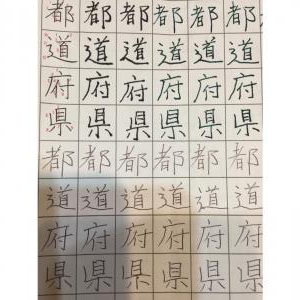 都都都都都都
道道道道道道
府府府府府府
県県県県県県
都都都都都都
道道道道道道
府府府府府府
県県県県県県